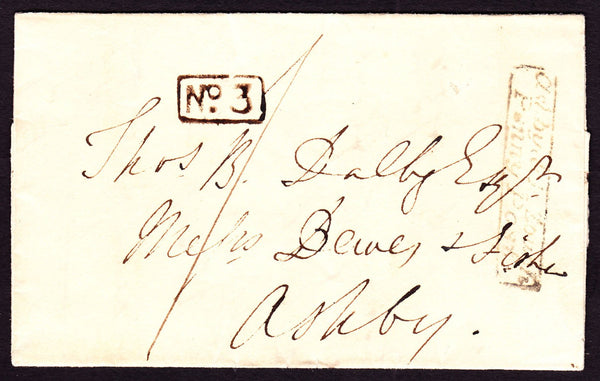 No. 3
Thos B. Dalby Esqr.
Messrs Dewes & Fisher
Ashby.
Penny Post